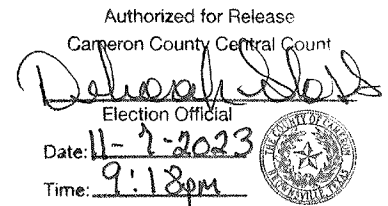 Authorized for Release
Cameron County Central Count
Election Official
Date: 11-7-2023
Time: 9:18pm
THE COUNTY OF CAMERON
BROWNSVILLE, TEXAS